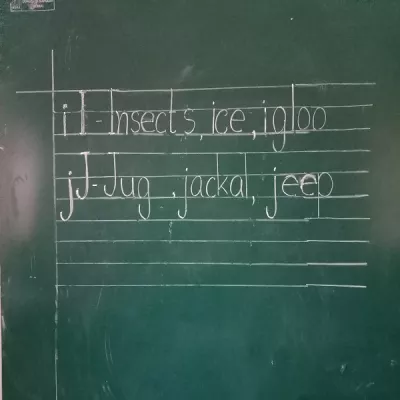 iI - Insects, ice, igloo
jJ - Jug, jackal, jeep